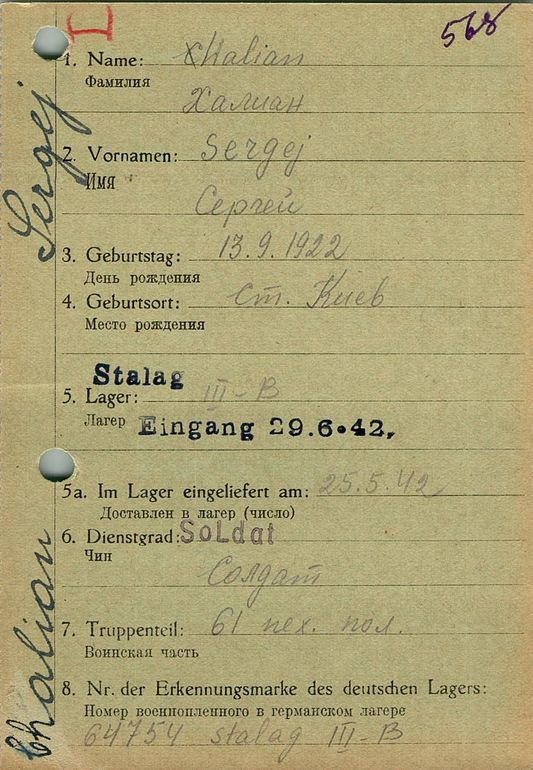 I
568
1. Name: Chalian
Фамилия
Халиан
2. Vornamen: Sergej
Имя
Сергей
3. Geburtstag: 13.9.1922
День рождения
4. Geburtsort: ст. Киев
Место рождения
Stalag
5. Lager: III-B
Лагер Eingang 29.6.42,
5a. Im Lager eingeliefert am: 25.5.42
Доставлен в лагер (число)
6. Dienstgrad: Soldat
Чин
Солдат
7. Truppenteil: 61 пех. пол.
Воинская часть
8. Nr. der Erkennungsmarke des deutschen Lagers:
Номер военнопленного в германском лагере
64754 stalag III-B
Chalian Sergej